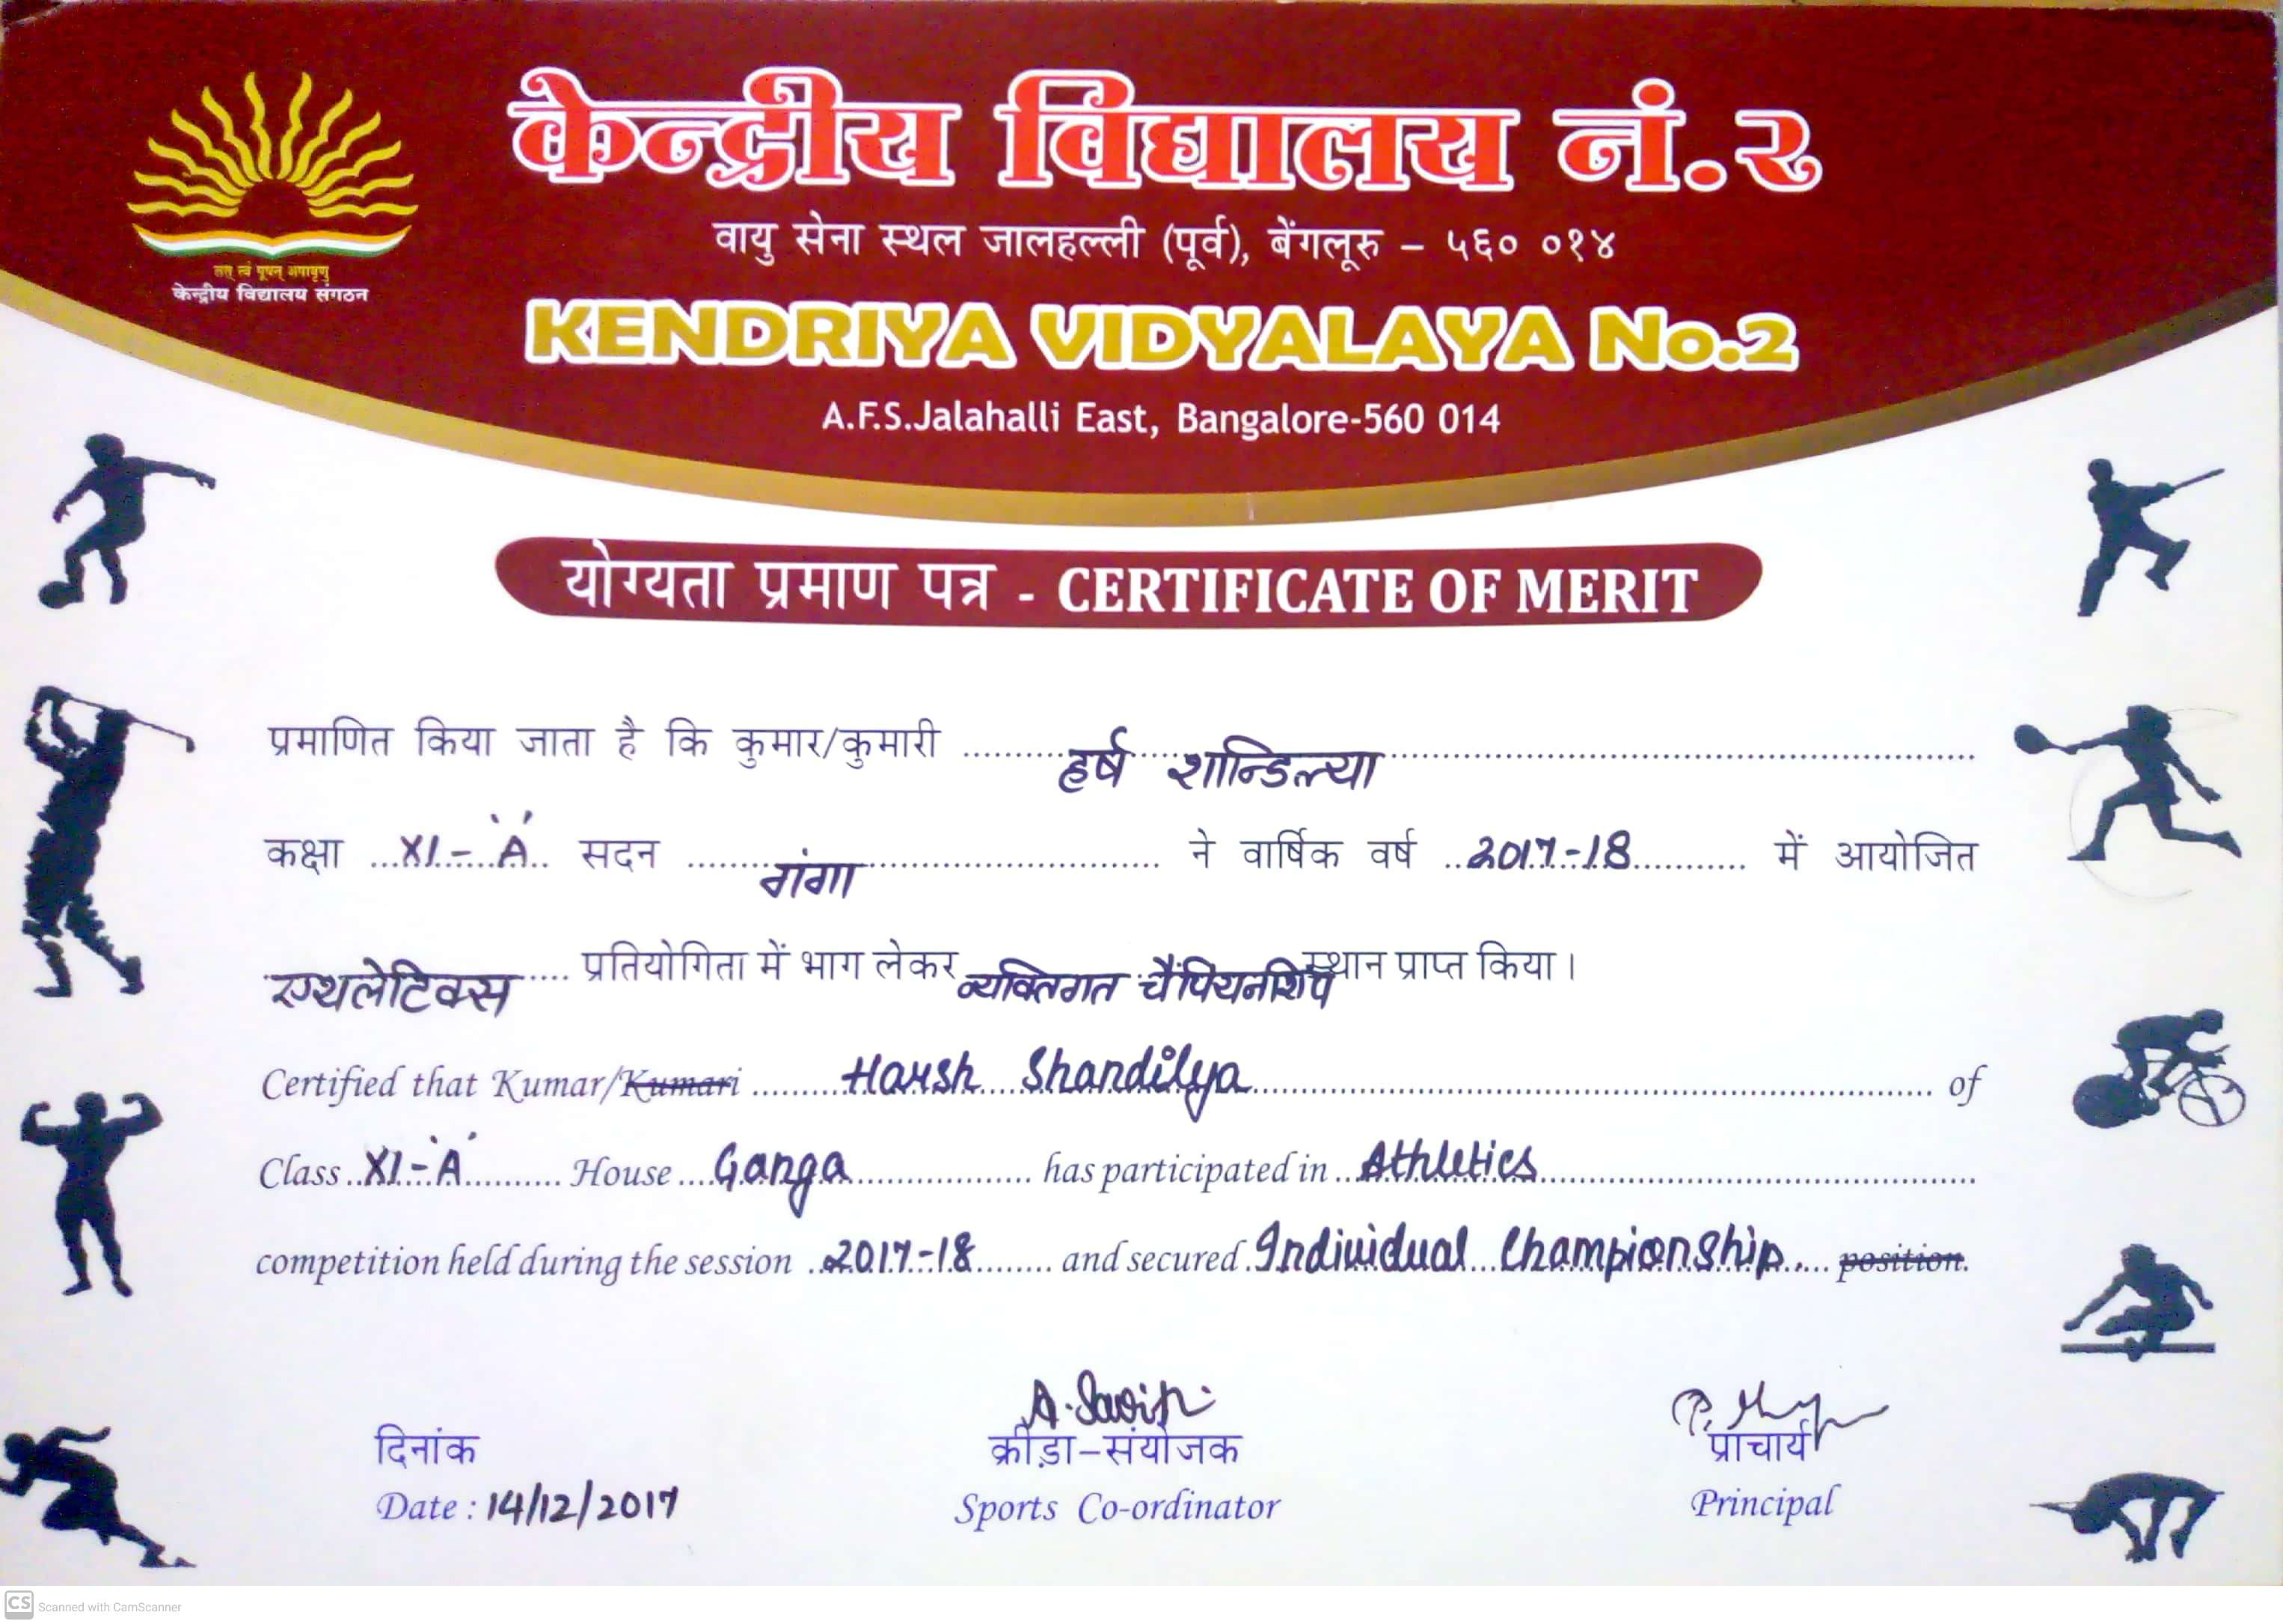 केन्द्रीय विद्यालय नं.२
तत् त्वं पूषन् अपावृणु
केन्द्रीय विद्यालय संगठन
वायु सेना स्थल जालहल्ली (पूर्व), बेंगलूरु – ५६० ०१४
KENDRIYA VIDYALAYA No.2
A.F.S.Jalahalli East, Bangalore-560 014
योग्यता प्रमाण पत्र - CERTIFICATE OF MERIT
प्रमाणित किया जाता है कि कुमार/कुमारी हर्ष शान्डिल्या
कक्षा XI-'A' सदन गंगा ने वार्षिक वर्ष 2017-18 में आयोजित
एथलेटिक्स प्रतियोगिता में भाग लेकर व्यक्तिगत चैंपियनशिप स्थान प्राप्त किया।
Certified that Kumar/Kumari Harsh Shandilya of
Class XI-'A' House Ganga has participated in Athletics
competition held during the session 2017-18 and secured Individual Championship. position.
दिनांक
Date : 14/12/2017
क्रीड़ा-संयोजक
Sports Co-ordinator
प्राचार्य
Principal
CS Scanned with CamScanner